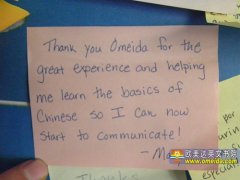 Thank you Omeida for the
great experience and helping
me learn the basics of
Chinese so I can now
start to communicate!
欧美达英文书院
www.omeida.com